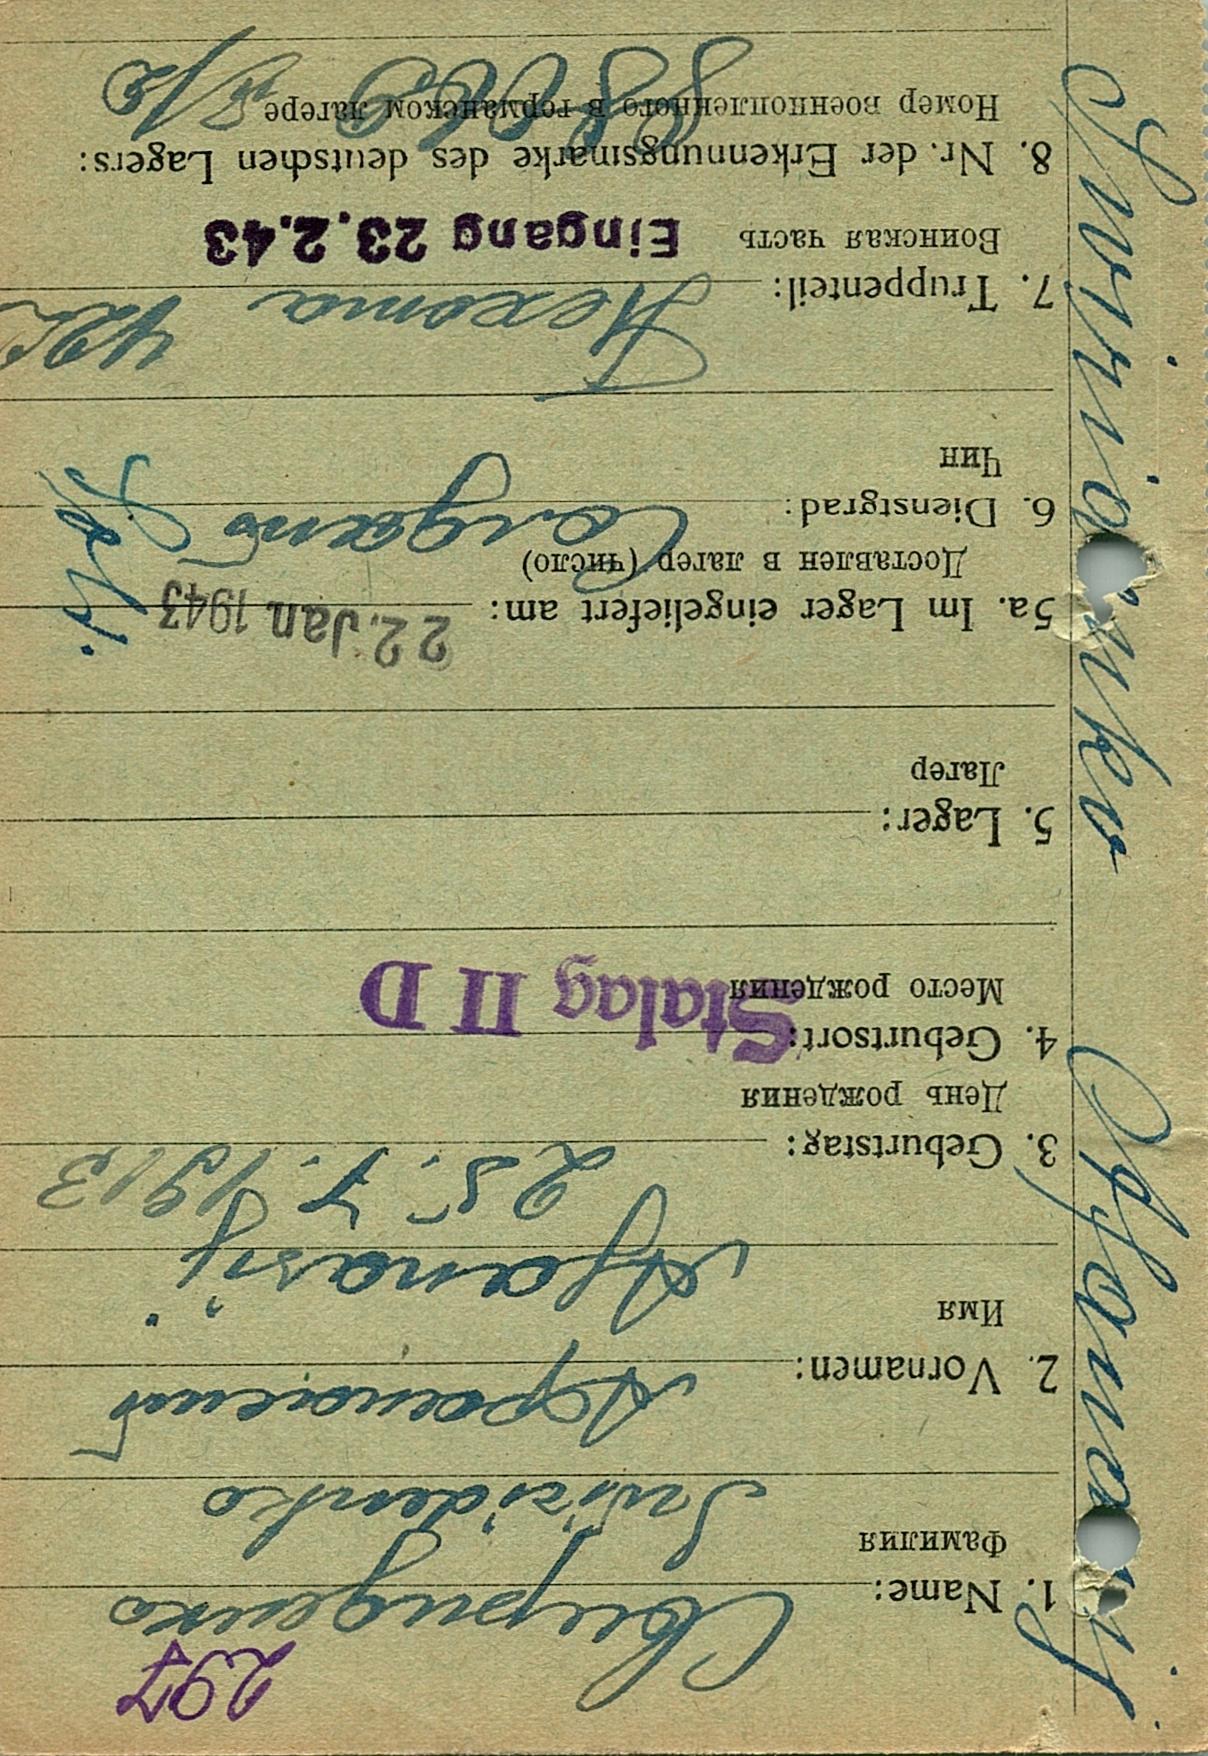 297
1. Name: Свириденко
Фамилия
Swiridenko
2. Vornamen: Афанасий
Имя
Afanasij
3. Geburtstag: 25. 7. 1913
День рождения
4. Geburtsort:
Место рождения
Stalag II D
5. Lager:
Лагер
5a. Im Lager eingeliefert am: 22. Jan 1943
Доставлен в лагер (число)
6. Dienstgrad: Солдат
Чин
7. Truppenteil: Пехота
Воинская часть Eingang 23.2.43
8. Nr. der Erkennungsmarke des deutschen Lagers:
Номер военнопленного в германском лагере
Swiridenko Afanasij